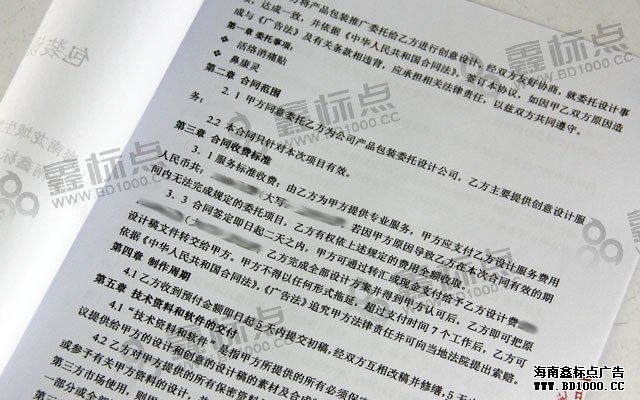 方将产品包装推广委托给乙方进行创意设计，经双方友好协商，就委托设计事
项，达成一致，并依据《中华人民共和国合同法》，签订本协议，如因甲乙双方原因造
成与《广告法》及有关条款相违背，应承担相关法律责任，以兹双方共同遵守。
第一章 委托事项：
◆ 活络消痛贴
◆ 鼻康灵
第二章 合同范围
2.1 甲方同意委托乙方为公司产品包装委托设计公司，乙方主要提供创意设计服
务；
2.2 本合同只针对本次项目有效。
第三章 合同收费标准
3.1 服务标准收费：由乙方为甲方提供专业服务，甲方应支付乙方设计服务费用
人民币共：（大写
若因甲方原因导致乙方在本次合同有效的期
间内无法完成规定的委托项目，乙方有权依上述规定的费用全额收取。
3.3 合同签定即日起二天之内，甲方可通过转汇或现金支付给乙方设计费
（大
乙方完成全部设计方案并得到甲方认可后，乙方即可把原
设计稿文件转交给甲方。甲方不得以任何形式拖延，超过支付时间7个工作后，乙方可
依据《中华人民共和国合同法》、《广告法》追究甲方法律责任并可向当地法院提出索赔。
第四章 制作周期
4.1 乙方收到预付金额即日起5天内提交初稿，经双方互相改稿并修缮，5天
第五章 技术资料和软件的交付
4.1 “技术资料和软件”是指甲方所提供的所有必须保
议提供给甲方的设计和创意的设计稿的素材及合成
4.2 乙方对甲方提供的所有保密资料
或参予有关甲方资料的设计，并
第三方市场使用，则因
一部分或全部
第
包装
鑫标点
WWW.BD1000.CC
鑫标点
WWW.BD1000.CC
鑫标点
WWW.BD1000.CC
鑫标点
WWW.BD1000.CC
海南鑫标点广告
WWW.BD1000.CC